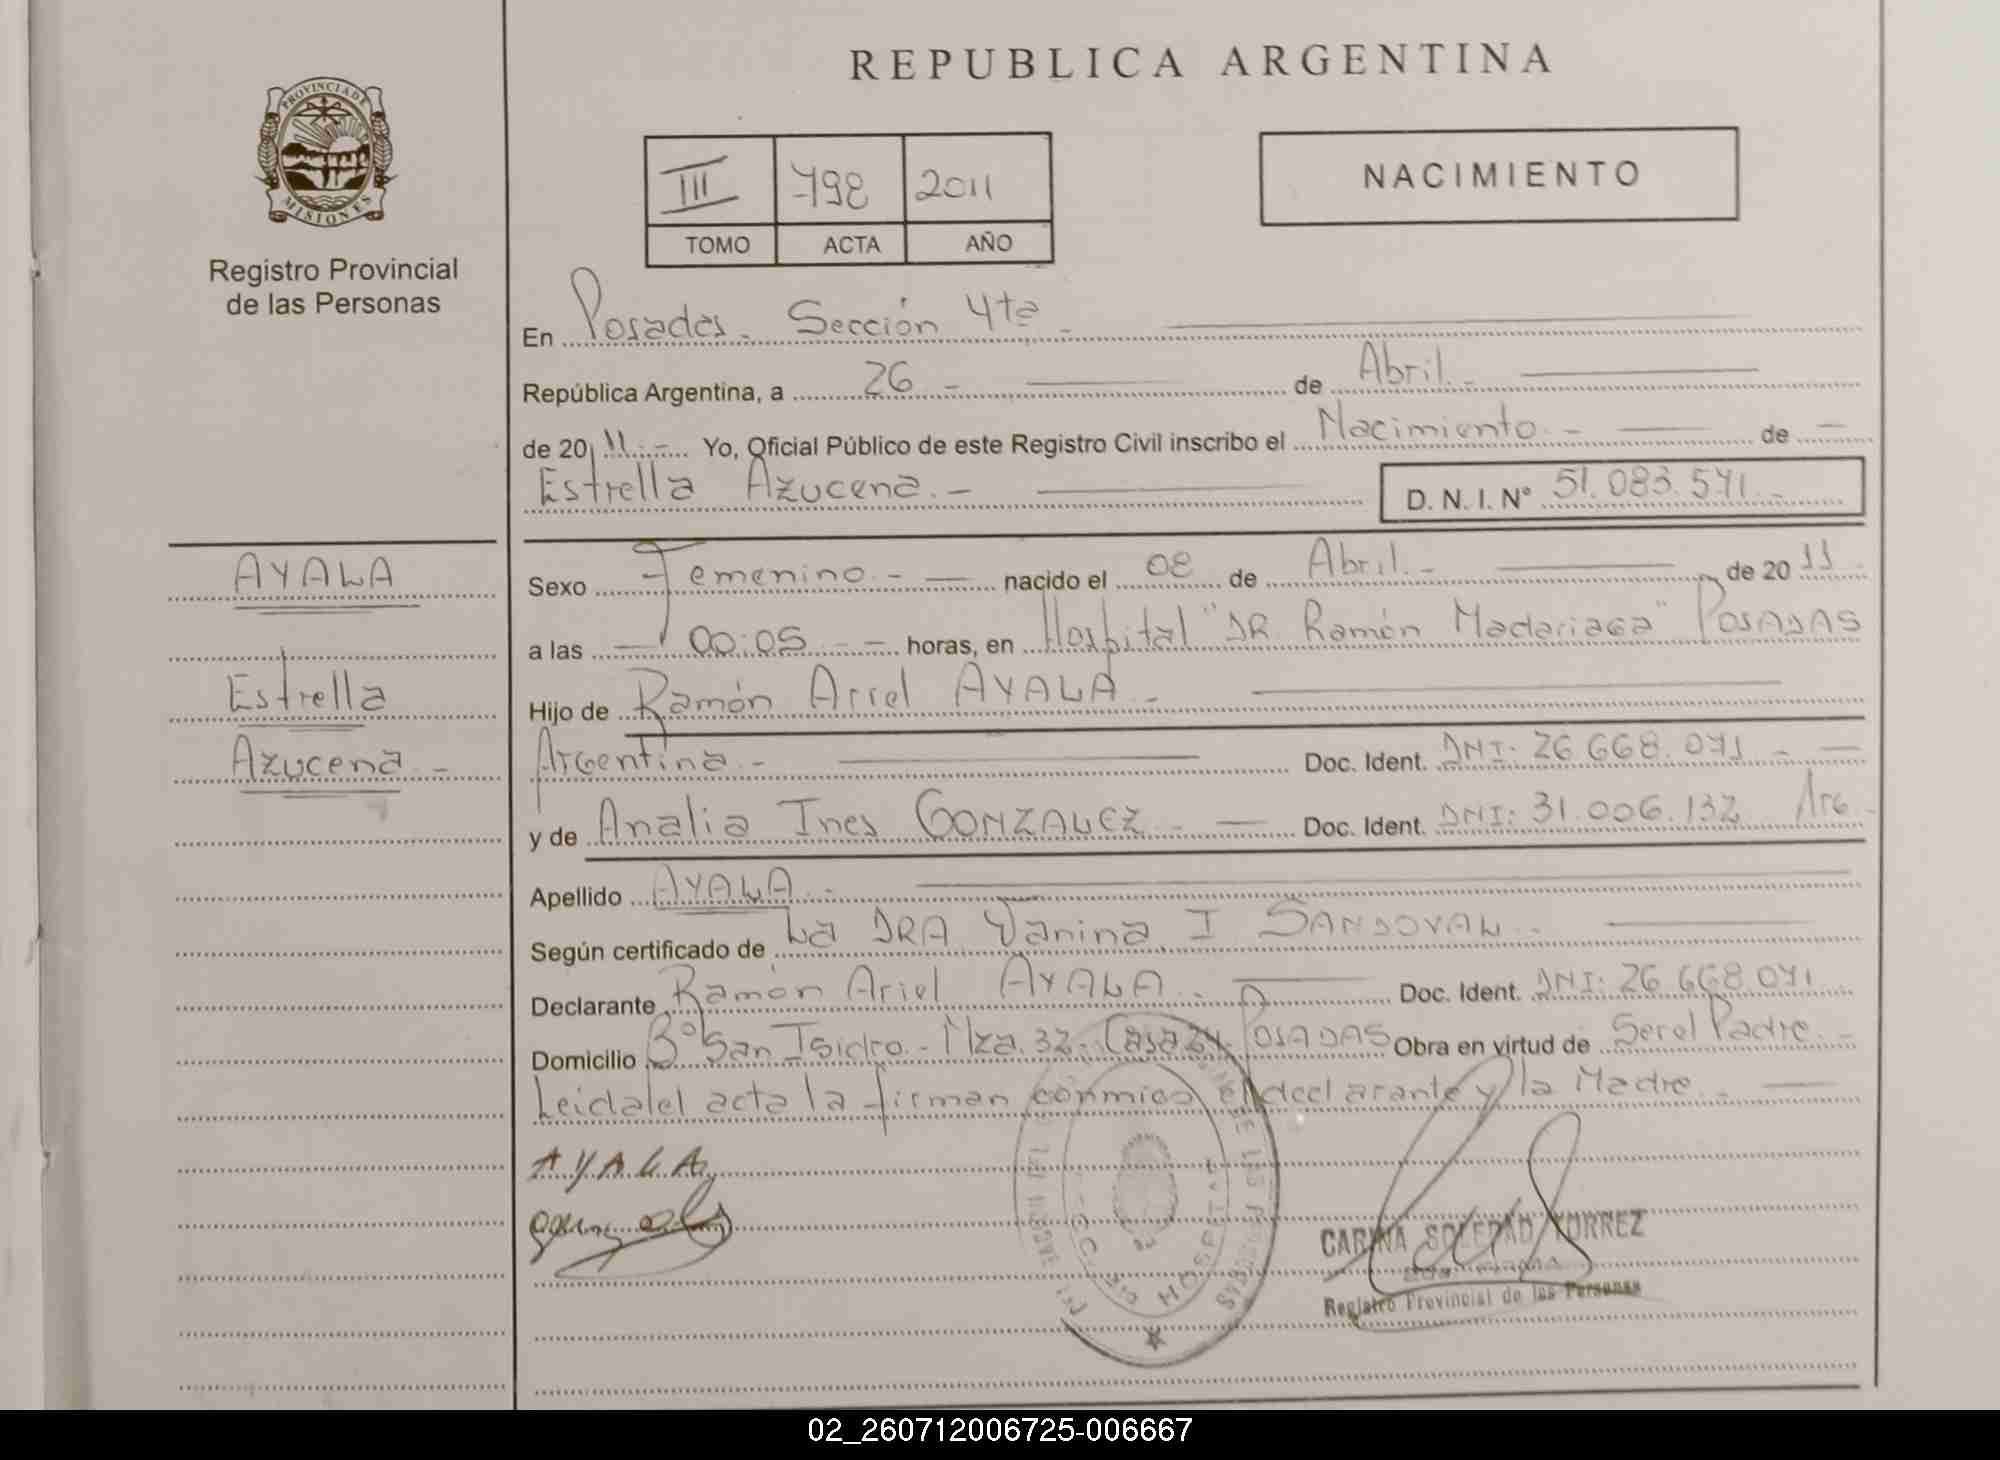 REPUBLICA ARGENTINA
PROVINCIA DE
MISIONES
Registro Provincial
de las Personas
III 798 2011
TOMO ACTA AÑO
NACIMIENTO
En Posadas. Sección 4ta -
República Argentina, a 26 - de Abril. -
de 20 11.- Yo, Oficial Público de este Registro Civil inscribo el Nacimiento. - de -
Estrella Azucena. - D. N. I. N° 51.083.571. -
AYALA
Estrella
Azucena -
Sexo Femenino. - nacido el 08 de Abril. - de 20 11
a las 00:05 - - horas, en Hospital "DR. Ramón Madariaga" POSADAS
Hijo de Ramón Ariel AYALA. -
Argentina. - Doc. Ident. DNI: 26.668.071 -
y de Analia Ines GONZALEZ. - Doc. Ident. DNI: 31.006.132 Arg.
Apellido AYALA. -
Según certificado de La DRA Vanina I SANDOVAL. -
Declarante Ramón Ariel AYALA. - Doc. Ident. DNI: 26.668.071
Domicilio B° San Isidro - Mza. 32 - Casa POSADAS Obra en virtud de Ser el Padre. -
Leida el acta la firman conmigo el declarante y la Madre. -
AYALA
CARINA SOLEDAD TORREZ
Registro Provincial de las Personas
02_260712006725-006667